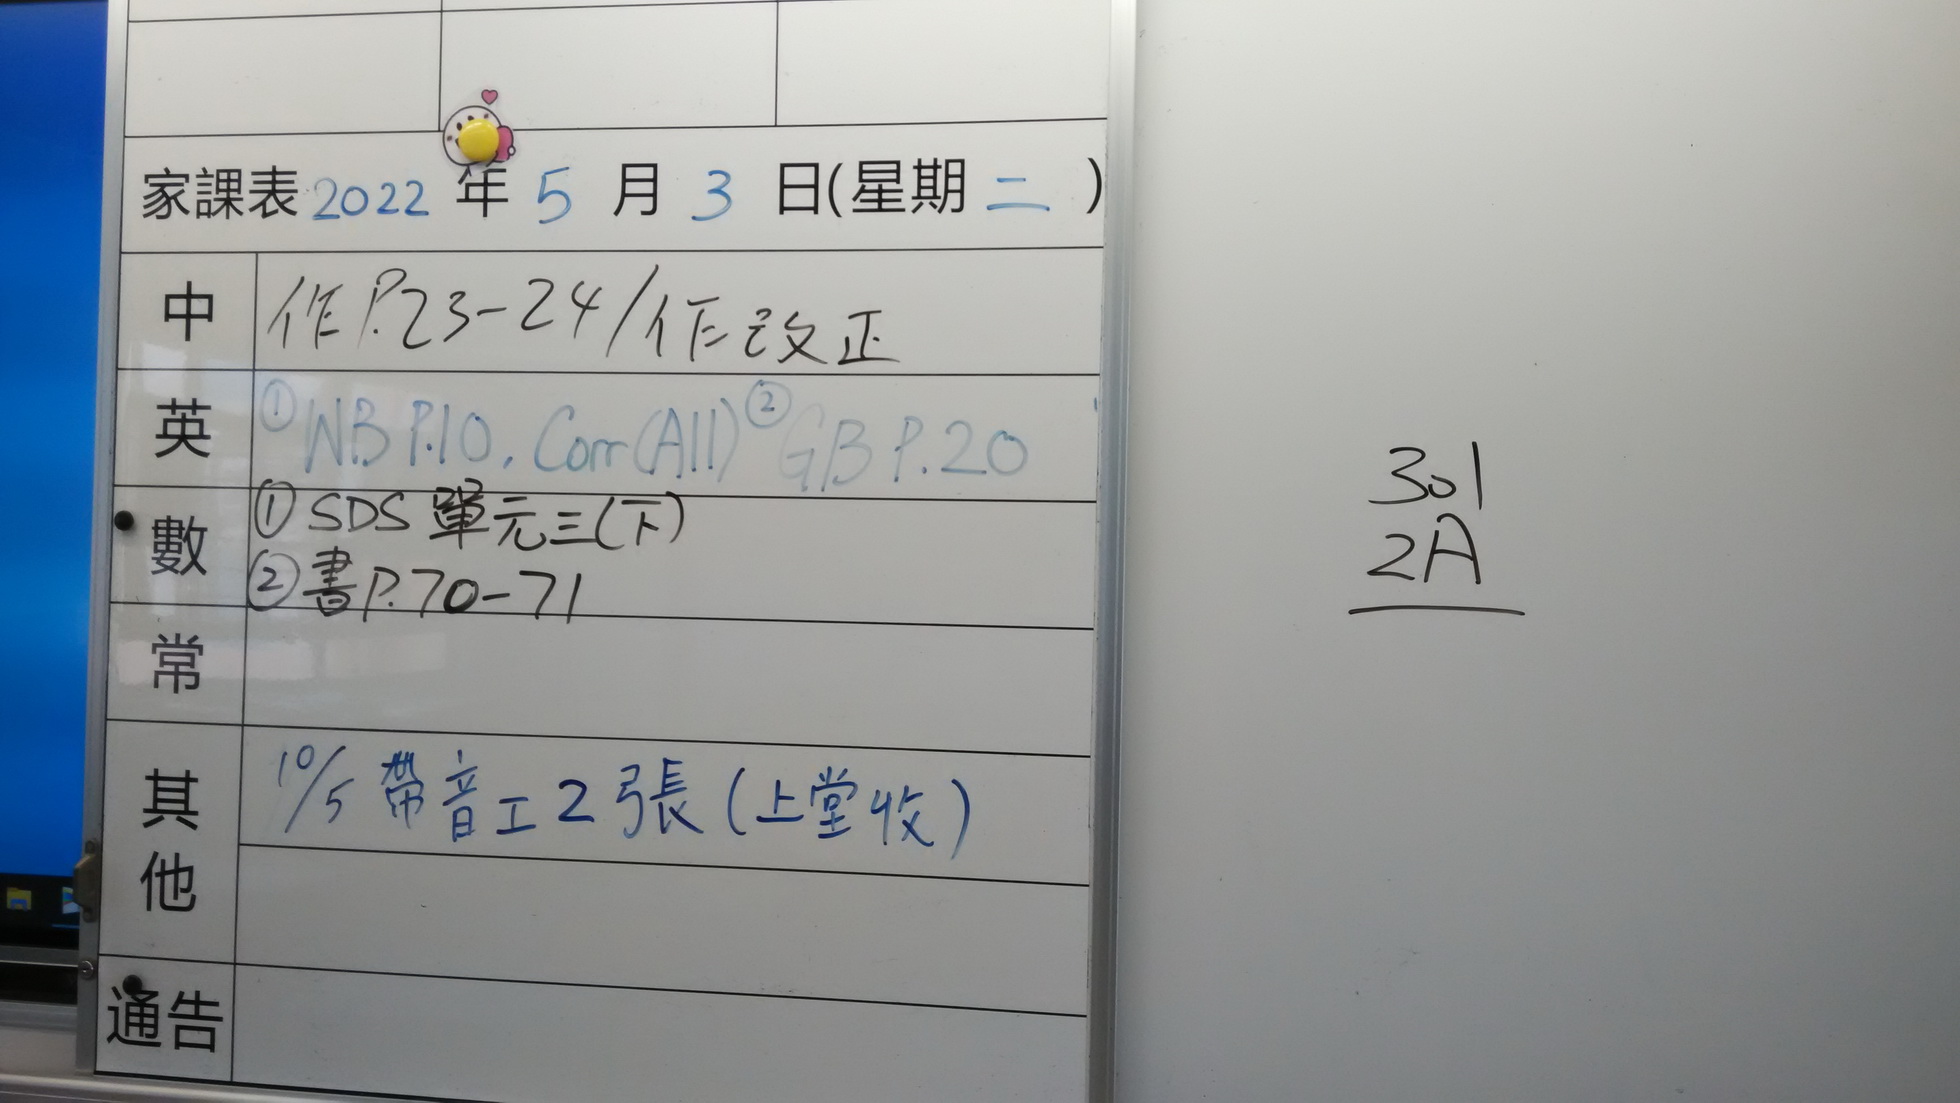 家課表 2022 年 5 月 3 日(星期 二 )
中 作P.23-24/作改正
英 ①WB P.10, Corr(All) ②GB P.20
數 ①SDS 單元三(下)
②書P.70-71
常
其他 10/5 帶音工2張(上堂收)
通告
301
2A